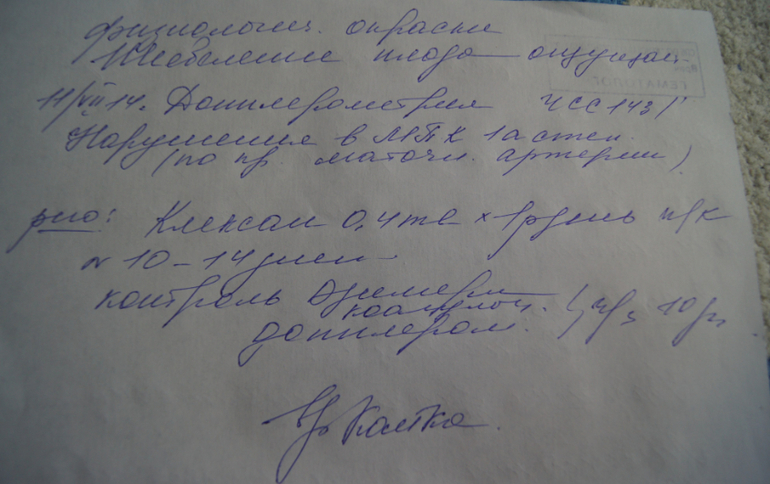 физиологич. окраски
Шевеление плода ощущает
11/VII 14. Доплерометрия ЧСС 143/'
Нарушения в МПК 1а степ.
(по пр. маточн. артерии)
рно: Клексан 0,4 мл × 1 р день п/к
N 10-14 дней
контроль Д димеры
коагулог.
доплером. через 10 дн.
ГЕМАТОЛОГ